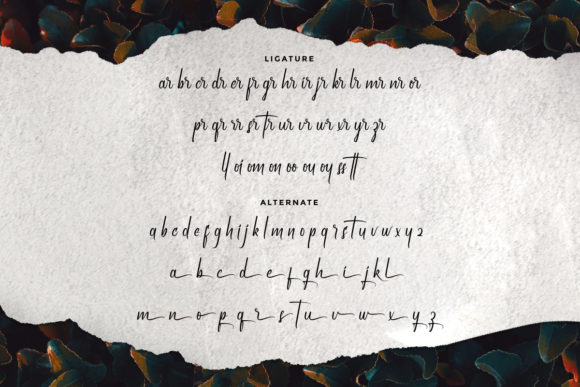 LIGATURE
ar br cr dr er fr gr hr ir jr kr lr mr nr or
pr qr rr sr tr ur vr wr xr yr zr
oi om on oo ou oy ss tt
ALTERNATE
a b c d e f g h i j k l m n o p q r s t u v w x y z
a b c d e f g h i j k l
m n o p q r s t u v w x y z